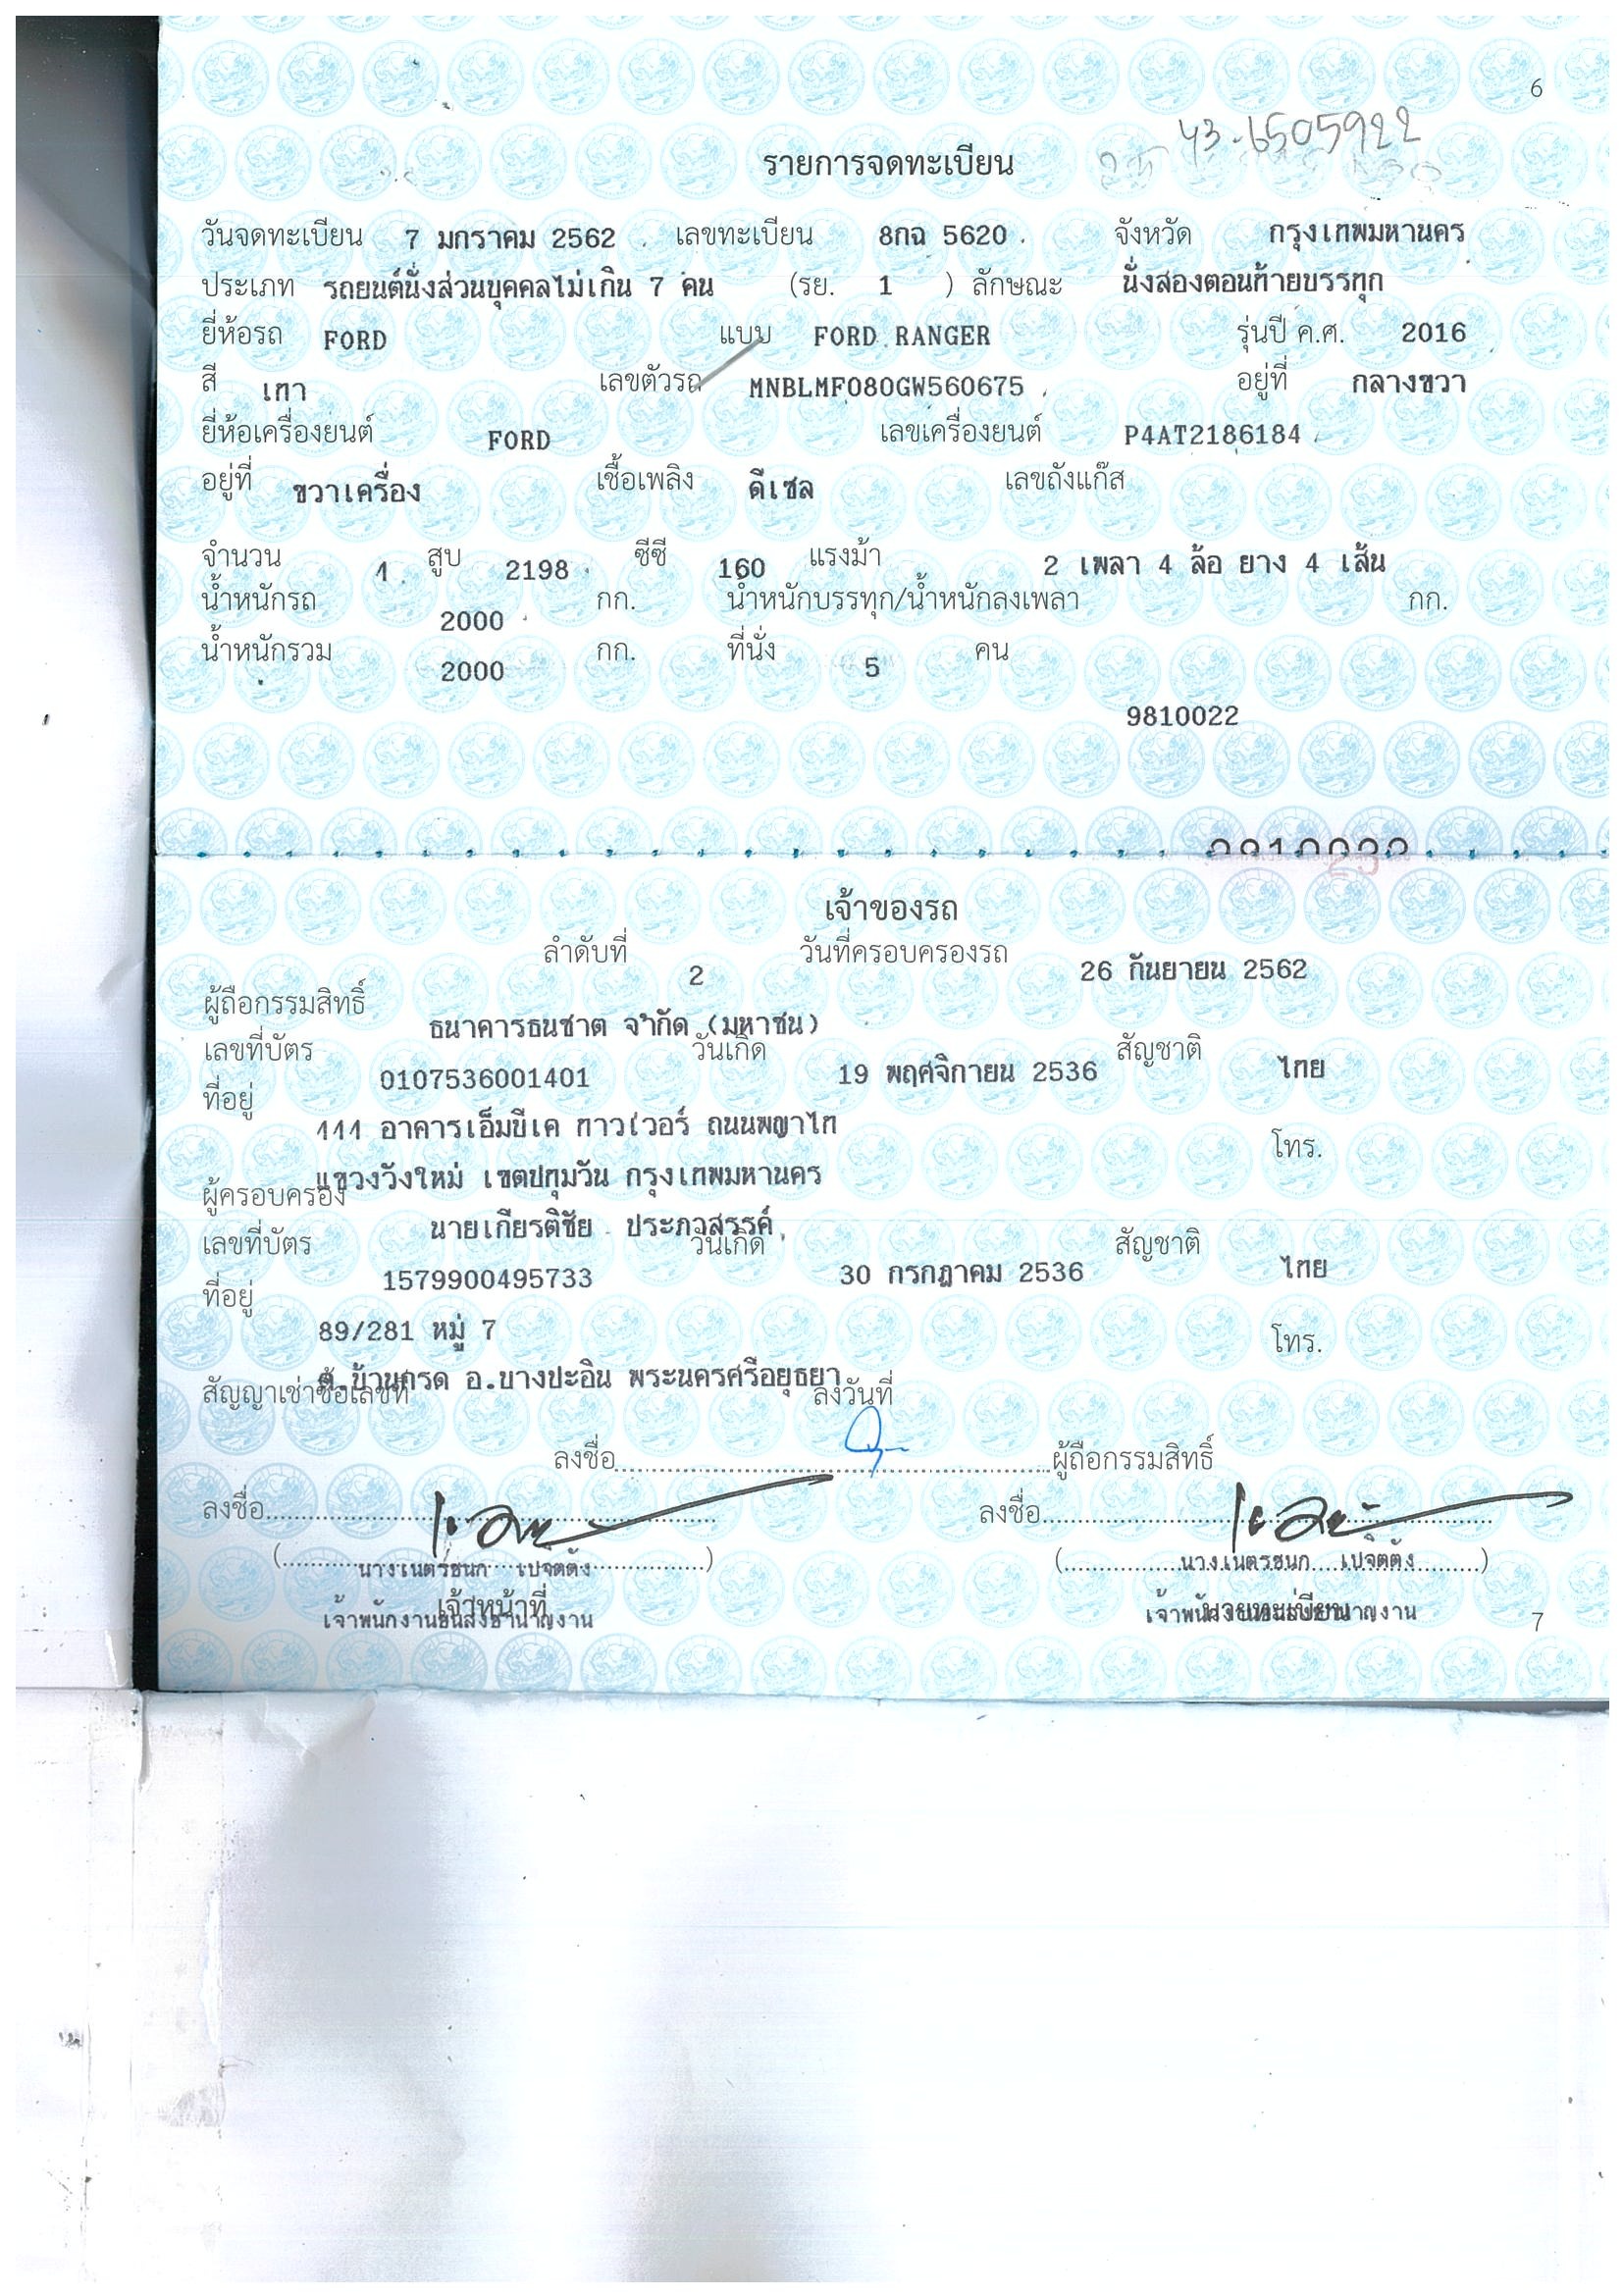 6
43-6505922
รายการจดทะเบียน
วันจดทะเบียน 7 มกราคม 2562 เลขทะเบียน 8กฉ 5620 จังหวัด กรุงเทพมหานคร
ประเภท รถยนต์นั่งส่วนบุคคลไม่เกิน 7 คน (รย. 1 ) ลักษณะ นั่งสองตอนท้ายบรรทุก
ยี่ห้อรถ FORD แบบ FORD RANGER รุ่นปี ค.ศ. 2016
สี เทา เลขตัวรถ MNBLMF080GW560675 อยู่ที่ กลางขวา
ยี่ห้อเครื่องยนต์ FORD เลขเครื่องยนต์ P4AT2186184
อยู่ที่ ขวาเครื่อง เชื้อเพลิง ดีเซล เลขถังแก๊ส
จำนวน 1 สูบ 2198 ซีซี 160 แรงม้า 2 เพลา 4 ล้อ ยาง 4 เส้น
น้ำหนักรถ 2000 กก. น้ำหนักบรรทุก/น้ำหนักลงเพลา กก.
น้ำหนักรวม 2000 กก. ที่นั่ง 5 คน
9810022
เจ้าของรถ
ลำดับที่ 2 วันที่ครอบครองรถ 26 กันยายน 2562
ผู้ถือกรรมสิทธิ์ ธนาคารธนชาต จำกัด (มหาชน)
เลขที่บัตร 0107536001401 วันเกิด 19 พฤศจิกายน 2536 สัญชาติ ไทย
ที่อยู่ 444 อาคารเอ็มบีเค ทาวเวอร์ ถนนพญาไท โทร.
แขวงวังใหม่ เขตปทุมวัน กรุงเทพมหานคร
ผู้ครอบครอง นายเกียรติชัย ประภาสรรค์
เลขที่บัตร 1579900495733 วันเกิด 30 กรกฎาคม 2536 สัญชาติ ไทย
ที่อยู่ 89/281 หมู่ 7 โทร.
ต.บ้านกรด อ.บางปะอิน พระนครศรีอยุธยา
สัญญาเช่าซื้อเลขที่ ลงวันที่
ลงชื่อ ผู้ถือกรรมสิทธิ์
ลงชื่อ ลงชื่อ
( นางเนตรชนก เปจิตตัง ) ( นางเนตรชนก เปจิตตัง )
เจ้าหน้าที่ นายทะเบียน
เจ้าพนักงานขนส่งชำนาญงาน เจ้าพนักงานขนส่งชำนาญงาน
7